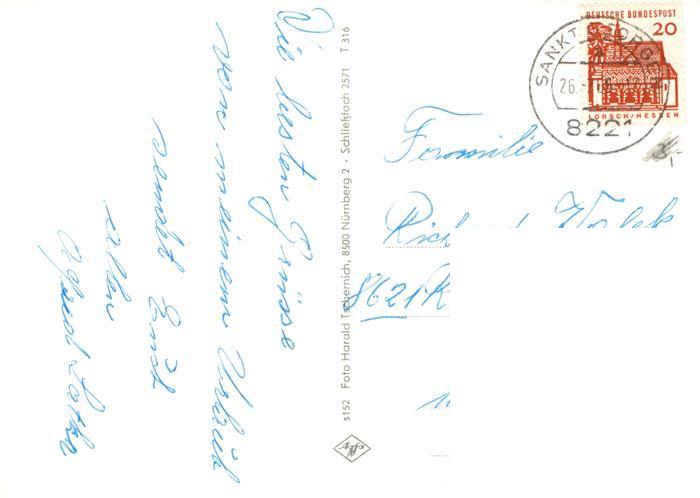 Die besten Grüsse
von meinem Urlaub
sendet Euch
allen
s152 Foto Harald Tschernich, 8500 Nürnberg 2 · Schließfach 2571 T 316
DEUTSCHE BUNDESPOST
20
LORSCH/HESSEN
SANKT GEORGEN
26.
8221
Familie
8621 K